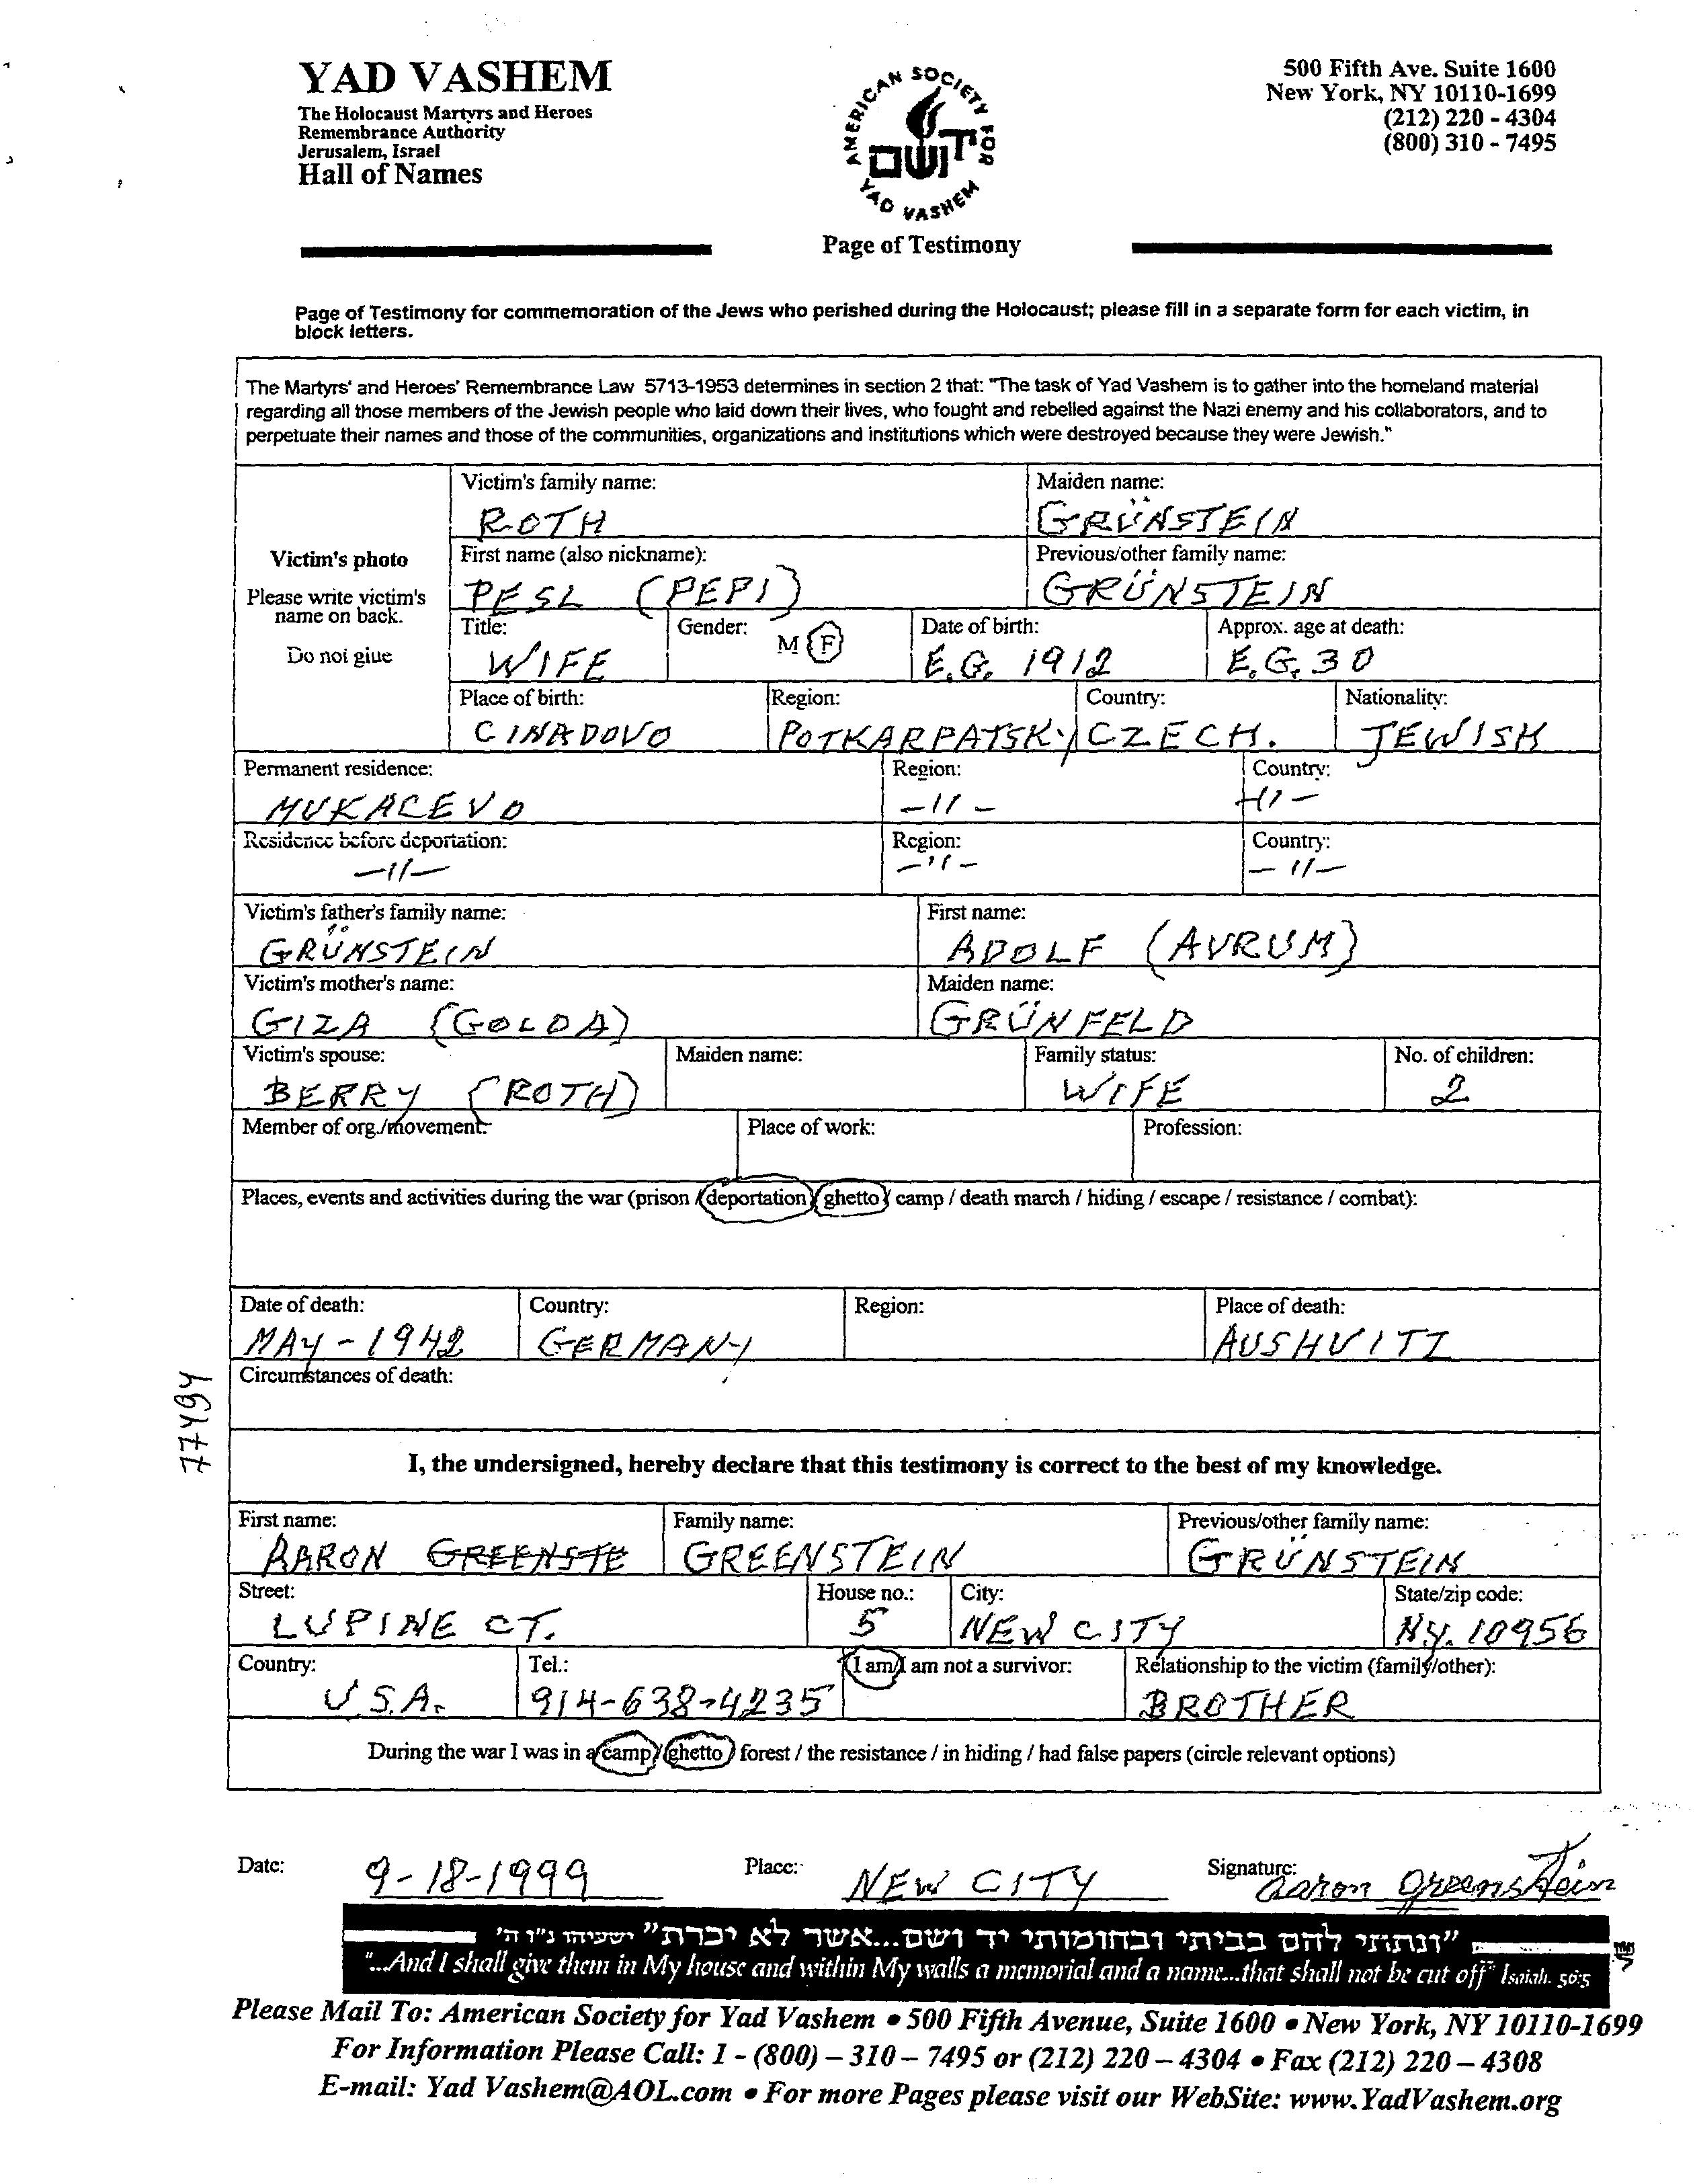 YAD VASHEM
The Holocaust Martyrs and Heroes
Remembrance Authority
Jerusalem, Israel
Hall of Names
AMERICAN SOCIETY FOR YAD VASHEM
יד ושם
Page of Testimony
500 Fifth Ave. Suite 1600
New York, NY 10110-1699
(212) 220 - 4304
(800) 310 - 7495
Page of Testimony for commemoration of the Jews who perished during the Holocaust; please fill in a separate form for each victim, in
block letters.
The Martyrs' and Heroes' Remembrance Law 5713-1953 determines in section 2 that: "The task of Yad Vashem is to gather into the homeland material
regarding all those members of the Jewish people who laid down their lives, who fought and rebelled against the Nazi enemy and his collaborators, and to
perpetuate their names and those of the communities, organizations and institutions which were destroyed because they were Jewish."
Victim's photo
Please write victim's
name on back.
Do not glue
Victim's family name: Maiden name:
ROTH GRÜNSTEIN
First name (also nickname): Previous/other family name:
PESL (PEPI) GRÜNSTEIN
Title: Gender: M F Date of birth: Approx. age at death:
WIFE E.G. 1912 E.G. 30
Place of birth: Region: Country: Nationality:
CINADOVO POTKARPATSKY CZECH. JEWISH
Permanent residence: Region: Country:
MUKACEVO -11- -11-
Residence before deportation: Region: Country:
-11- -11- -11-
Victim's father's family name: First name:
GRÜNSTEIN ADOLF (AVRUM)
Victim's mother's name: Maiden name:
GIZA (GOLDA) GRÜNFELD
Victim's spouse: Maiden name: Family status: No. of children:
BERRY (ROTH) WIFE 2
Member of org./movement: Place of work: Profession:
Places, events and activities during the war (prison / deportation / ghetto / camp / death march / hiding / escape / resistance / combat):
Date of death: Country: Region: Place of death:
MAY - 1942 GERMANY AUSHVITZ
Circumstances of death:
77494
I, the undersigned, hereby declare that this testimony is correct to the best of my knowledge.
First name: Family name: Previous/other family name:
AARON GREENSTE GREENSTEIN GRÜNSTEIN
Street: House no.: City: State/zip code:
LUPINE CT. 5 NEW CITY N.Y. 10956
Country: Tel.: I am/I am not a survivor: Relationship to the victim (family/other):
U.S.A. 914-638-4235 BROTHER
During the war I was in a camp / ghetto / forest / the resistance / in hiding / had false papers (circle relevant options)
Date: 9-18-1999 Place: NEW CITY Signature: Aaron Greenstein
"ונתתי להם בביתי ובחומותי יד ושם...אשר לא יכרת" ישעיהו נ"ו ה'
"...And I shall give them in My house and within My walls a memorial and a name...that shall not be cut off" Isaiah. 56:5
Please Mail To: American Society for Yad Vashem • 500 Fifth Avenue, Suite 1600 • New York, NY 10110-1699
For Information Please Call: 1 - (800) – 310 – 7495 or (212) 220 – 4304 • Fax (212) 220 – 4308
E-mail: Yad Vashem@AOL.com • For more Pages please visit our WebSite: www.YadVashem.org